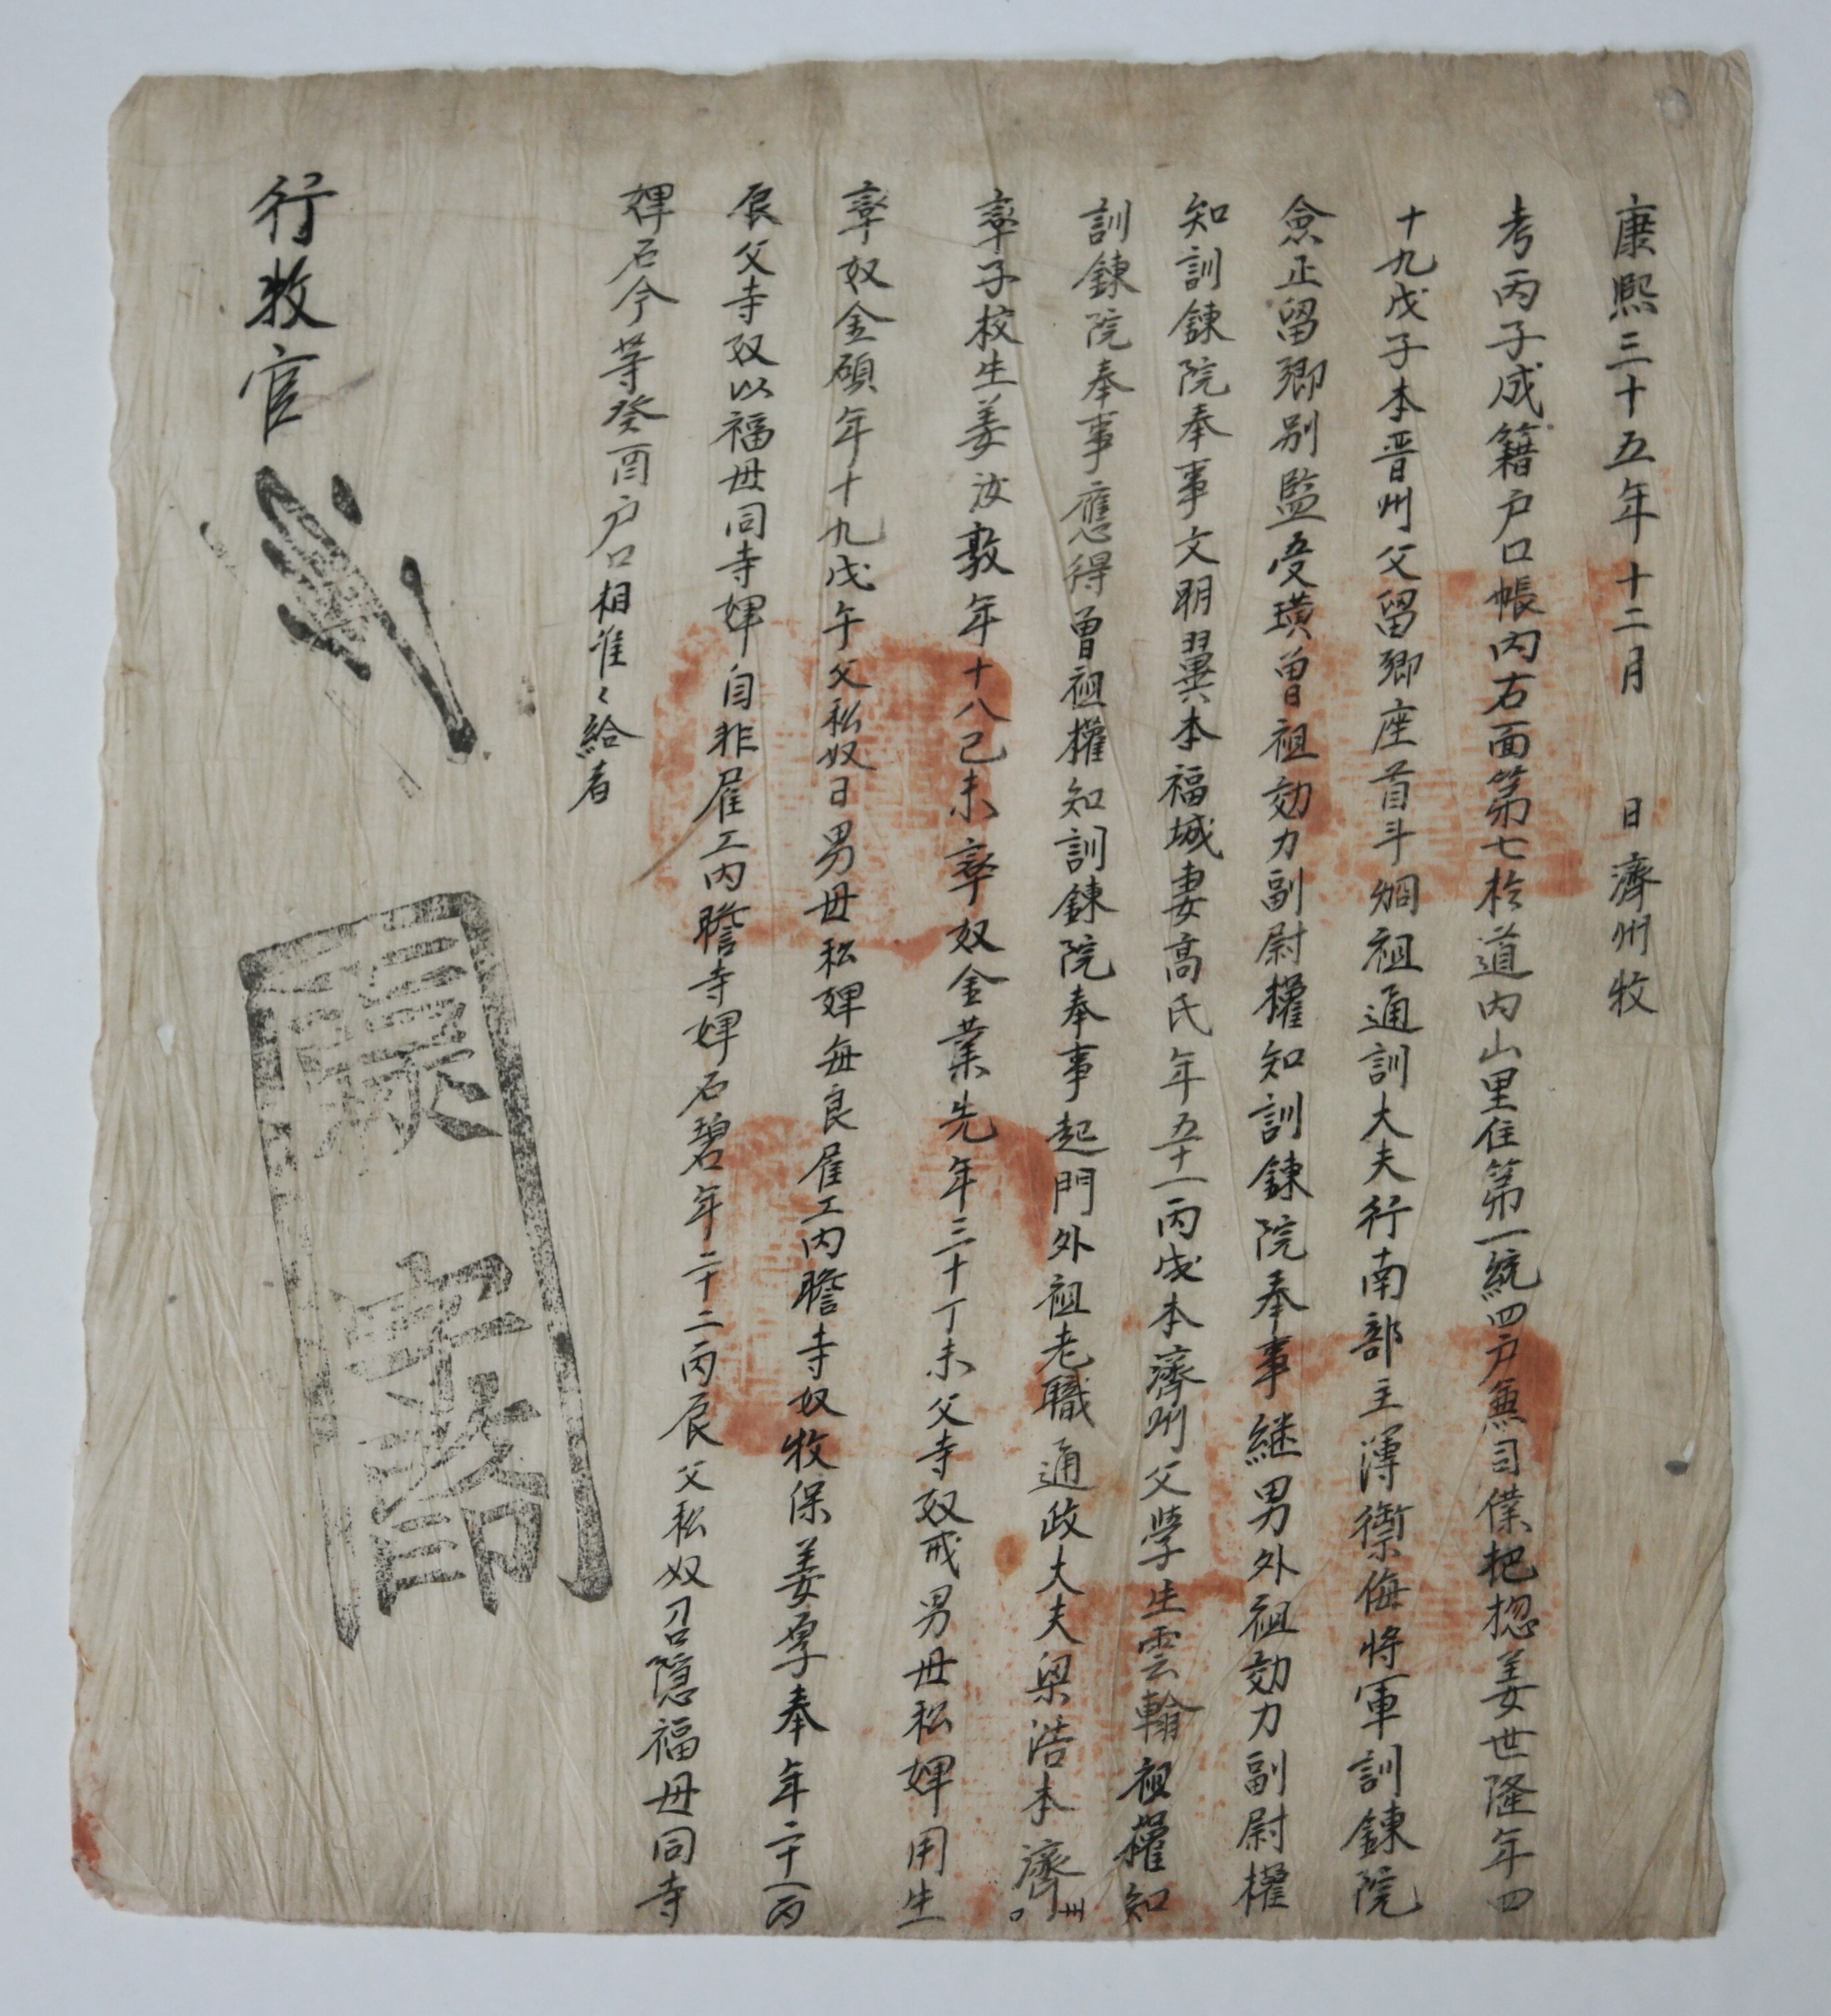 康熙三十五年十二月　日濟州牧
考丙子成籍戶口帳內右面第七於道內山里住第一統四戶無司僕把揔姜世隆年四
十九戊子本晋州父留鄉座首斗烱祖通訓大夫行南部主簿禦侮將軍訓鍊院
僉正留鄉別監受璜曾祖効力副尉權知訓鍊院奉事継男外祖効力副尉權
知訓鍊院奉事文明翼本福城妻高氏年五十一丙戌本濟州父學生雲翰祖權知
訓鍊院奉事應得曾祖權知訓鍊院奉事起門外祖老職通政大夫梁浩本濟州
率子校生姜汝敦年十八己未率奴金業先年三十丁未父寺奴戒男母私婢用生
率奴金碩年十九戊午父私奴日男母私婢每良雇工內贍寺奴牧保姜厚奉年二十一丙
辰父寺奴以福母同寺婢自非雇工內贍寺婢石碧年二十二丙辰父私奴召隱福母同寺
婢石今等癸酉戶口相准々給者
行牧官